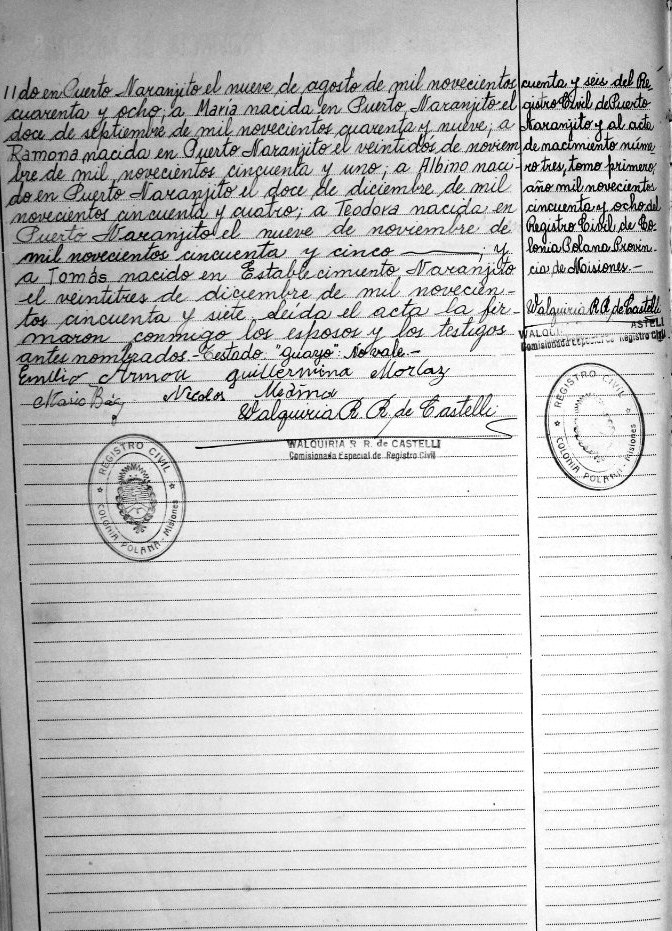 11do en Puerto Naranjito el nueve de agosto de mil novecientos
cuarenta y ocho; a María nacida en Puerto Naranjito el
doce de septiembre de mil novecientos cuarenta y nueve; a
Ramona nacida en Puerto Naranjito el veintidos de noviem
bre de mil, novecientos cincuenta y uno; a Albino naci-
do en Puerto Naranjito el doce de diciembre de mil
novecientos cincuenta y cuatro; a Teodora nacida en
Puerto Naranjito el nueve de noviembre de
mil novecientos cincuenta y cinco ———; y
a Tomás nacido en Establecimiento Naranjito
el veintitres de diciembre de mil novecien-
tos cincuenta y siete. Leida el acta la fir-
maron conmigo los esposos y los testigos
antes nombrados - Testado "guayo": No vale.-
Emilio Guillermina Morlaz
Mario Nicolas Medina
Walquiria R. R. de Castelli
WALQUIRIA R. R. de CASTELLI
Comisionada Especial de Registro Civil
REGISTRO CIVIL
COLONIA POLANA - Misiones
cuenta y seis del Re-
gistro Civil de Puerto
Naranjito y al acta
de nacimiento núme
ro tres, tomo primero,
año mil novecientos
cincuenta y ocho del
Registro Civil de Co-
lonia Polana Provin-
cia de Misiones.-
Walquiria R. R. de Castelli
WALQUI ASTELLI
Comisionada Especial de Registro Civil
REGISTRO CIVIL
COLONIA POLANA - Misiones